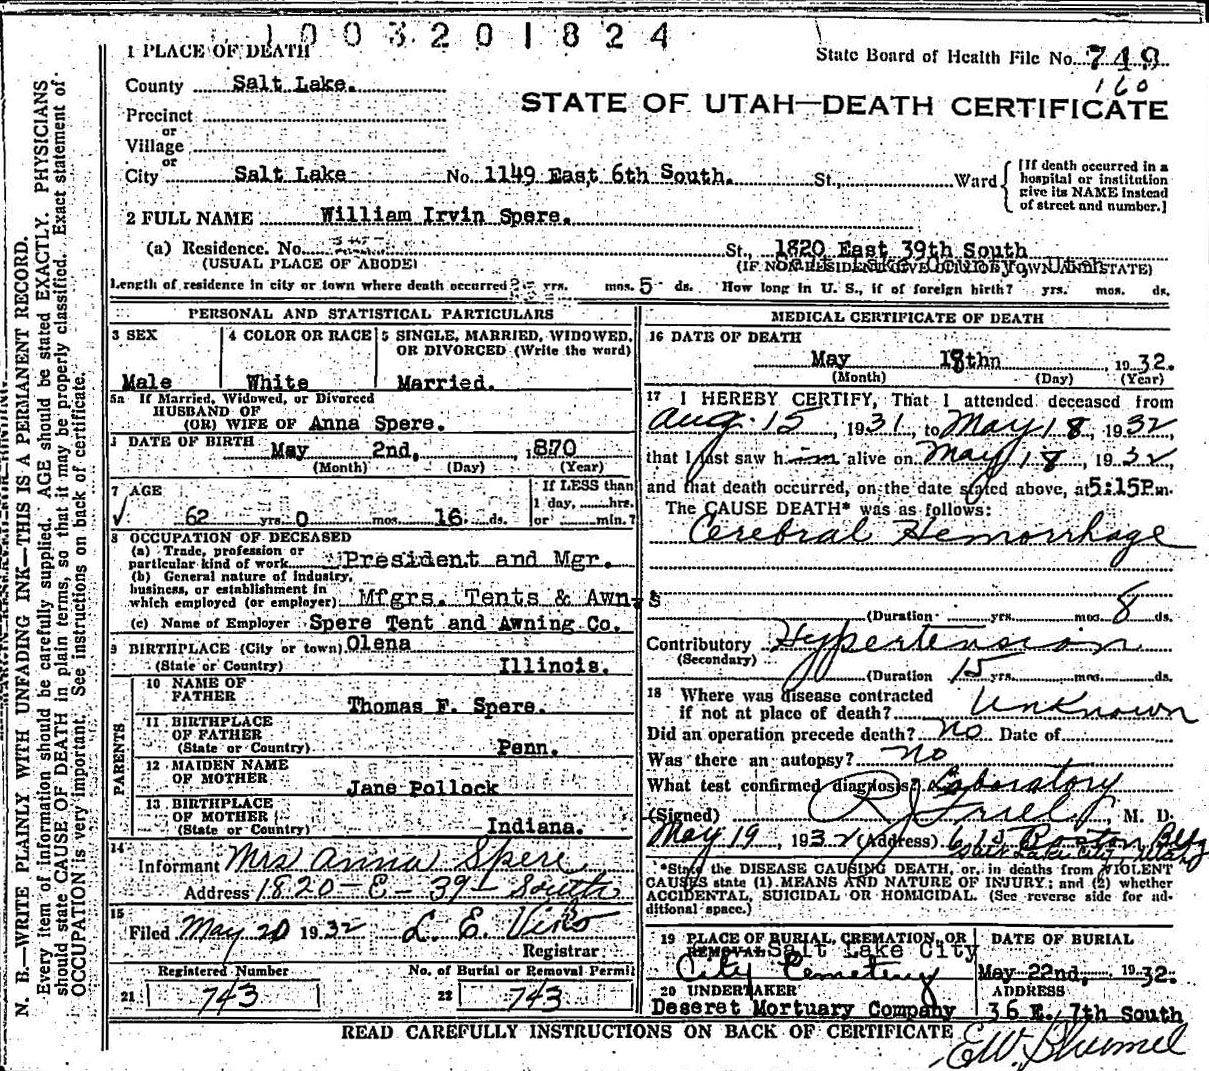 1003201824
1 PLACE OF DEATH
State Board of Health File No. 749
160
County Salt Lake.
STATE OF UTAH—DEATH CERTIFICATE
Precinct
or
Village
or
City Salt Lake No. 1149 East 6th South. St., Ward
[If death occurred in a hospital or institution give its NAME instead of street and number.]
2 FULL NAME William Irvin Spere.
(a) Residence. No. St., 1820 East 39th South
(USUAL PLACE OF ABODE) (IF NON-RESIDENT GIVE CITY OR TOWN AND STATE)
Length of residence in city or town where death occurred yrs. mos. 5 ds. How long in U. S., if of foreign birth? yrs. mos. ds.
PERSONAL AND STATISTICAL PARTICULARS
3 SEX 4 COLOR OR RACE 5 SINGLE, MARRIED, WIDOWED,
OR DIVORCED (Write the word)
Male White Married.
5a If Married, Widowed, or Divorced
HUSBAND OF
(OR) WIFE OF Anna Spere.
DATE OF BIRTH May 2nd, 1870
(Month) (Day) (Year)
7 AGE
If LESS than
1 day, hrs.
62 yrs. 0 mos. 16 ds. or min.?
8 OCCUPATION OF DECEASED
(a) Trade, profession or
particular kind of work President and Mgr.
(b) General nature of industry,
business, or establishment in
which employed (or employer) Mfgrs. Tents & Awn-s
(c) Name of Employer Spere Tent and Awning Co.
9 BIRTHPLACE (City or town) Olena
(State or Country) Illinois.
PARENTS
10 NAME OF
FATHER Thomas F. Spere.
11 BIRTHPLACE
OF FATHER
(State or Country) Penn.
12 MAIDEN NAME
OF MOTHER Jane Pollock
13 BIRTHPLACE
OF MOTHER
(State or Country) Indiana.
14
Informant Mrs Anna Spere
Address 1820-E-39-South
15
Filed May 20 1932 L. E. Viko
Registrar
Registered Number No. of Burial or Removal Permit
21 743 22 743
MEDICAL CERTIFICATE OF DEATH
16 DATE OF DEATH
May 18th 1932.
(Month) (Day) (Year)
17 I HEREBY CERTIFY, That I attended deceased from
Aug. 15, 1931, to May 18, 1932,
that I last saw him alive on May 18, 1932
and that death occurred, on the date stated above, at 5:15P.m.
The CAUSE DEATH* was as follows:
Cerebral Hemorrhage
(Duration yrs. mos. 8 ds.
Contributory Hypertension
(Secondary)
(Duration 15 yrs. mos. ds.
18 Where was disease contracted
if not at place of death? Unknown
Did an operation precede death? No Date of
Was there an autopsy? No
What test confirmed diagnosis? Laboratory
(Signed) M. D.
May 19, 1932 (Address) Boston Bldg
Salt Lake City, Utah
*State the DISEASE CAUSING DEATH, or, in deaths from VIOLENT
CAUSES state (1) MEANS AND NATURE OF INJURY; and (2) whether
ACCIDENTAL, SUICIDAL OR HOMICIDAL. (See reverse side for ad-
ditional space.)
19 PLACE OF BURIAL, CREMATION, OR REMOVAL DATE OF BURIAL
Salt Lake City
City Cemetery May 22nd, 1932.
20 UNDERTAKER ADDRESS
Deseret Mortuary Company 36 E. 7th South
READ CAREFULLY INSTRUCTIONS ON BACK OF CERTIFICATE
N. B.—WRITE PLAINLY WITH UNFADING INK—THIS IS A PERMANENT RECORD.
Every item of information should be carefully supplied. AGE should be stated EXACTLY. PHYSICIANS
should state CAUSE OF DEATH in plain terms, so that it may be properly classified. Exact statement of
OCCUPATION is very important. See instructions on back of certificate.